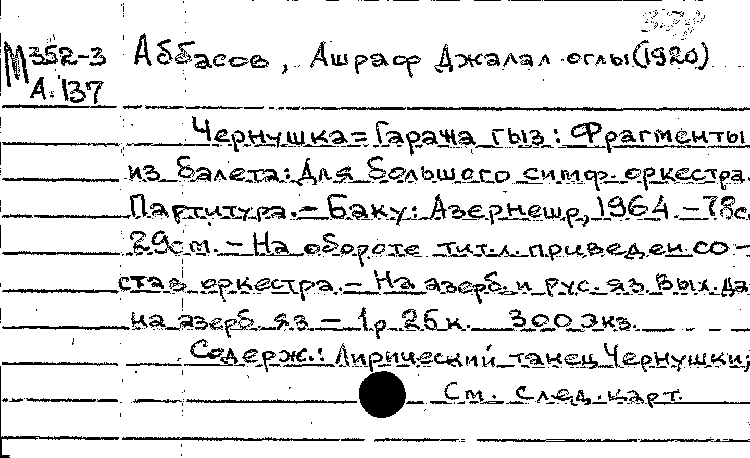 М352-3 Аббасов, Ашраф Джалал оглы (1920)
А.137
Чернушка = Гаража гыз: Фрагменты
из балета: Для большого симф. оркестра.
Партитура. – Баку: Азернешр, 1964. – 78с.
29см. – На обороте тит.л. приведен со-
став оркестра. – На азерб. и рус. яз. Вых. да
на азерб. яз – 1р 25к. 300 экз.
Содерж.: Лирический танец Чернушки;
См. след. карт.